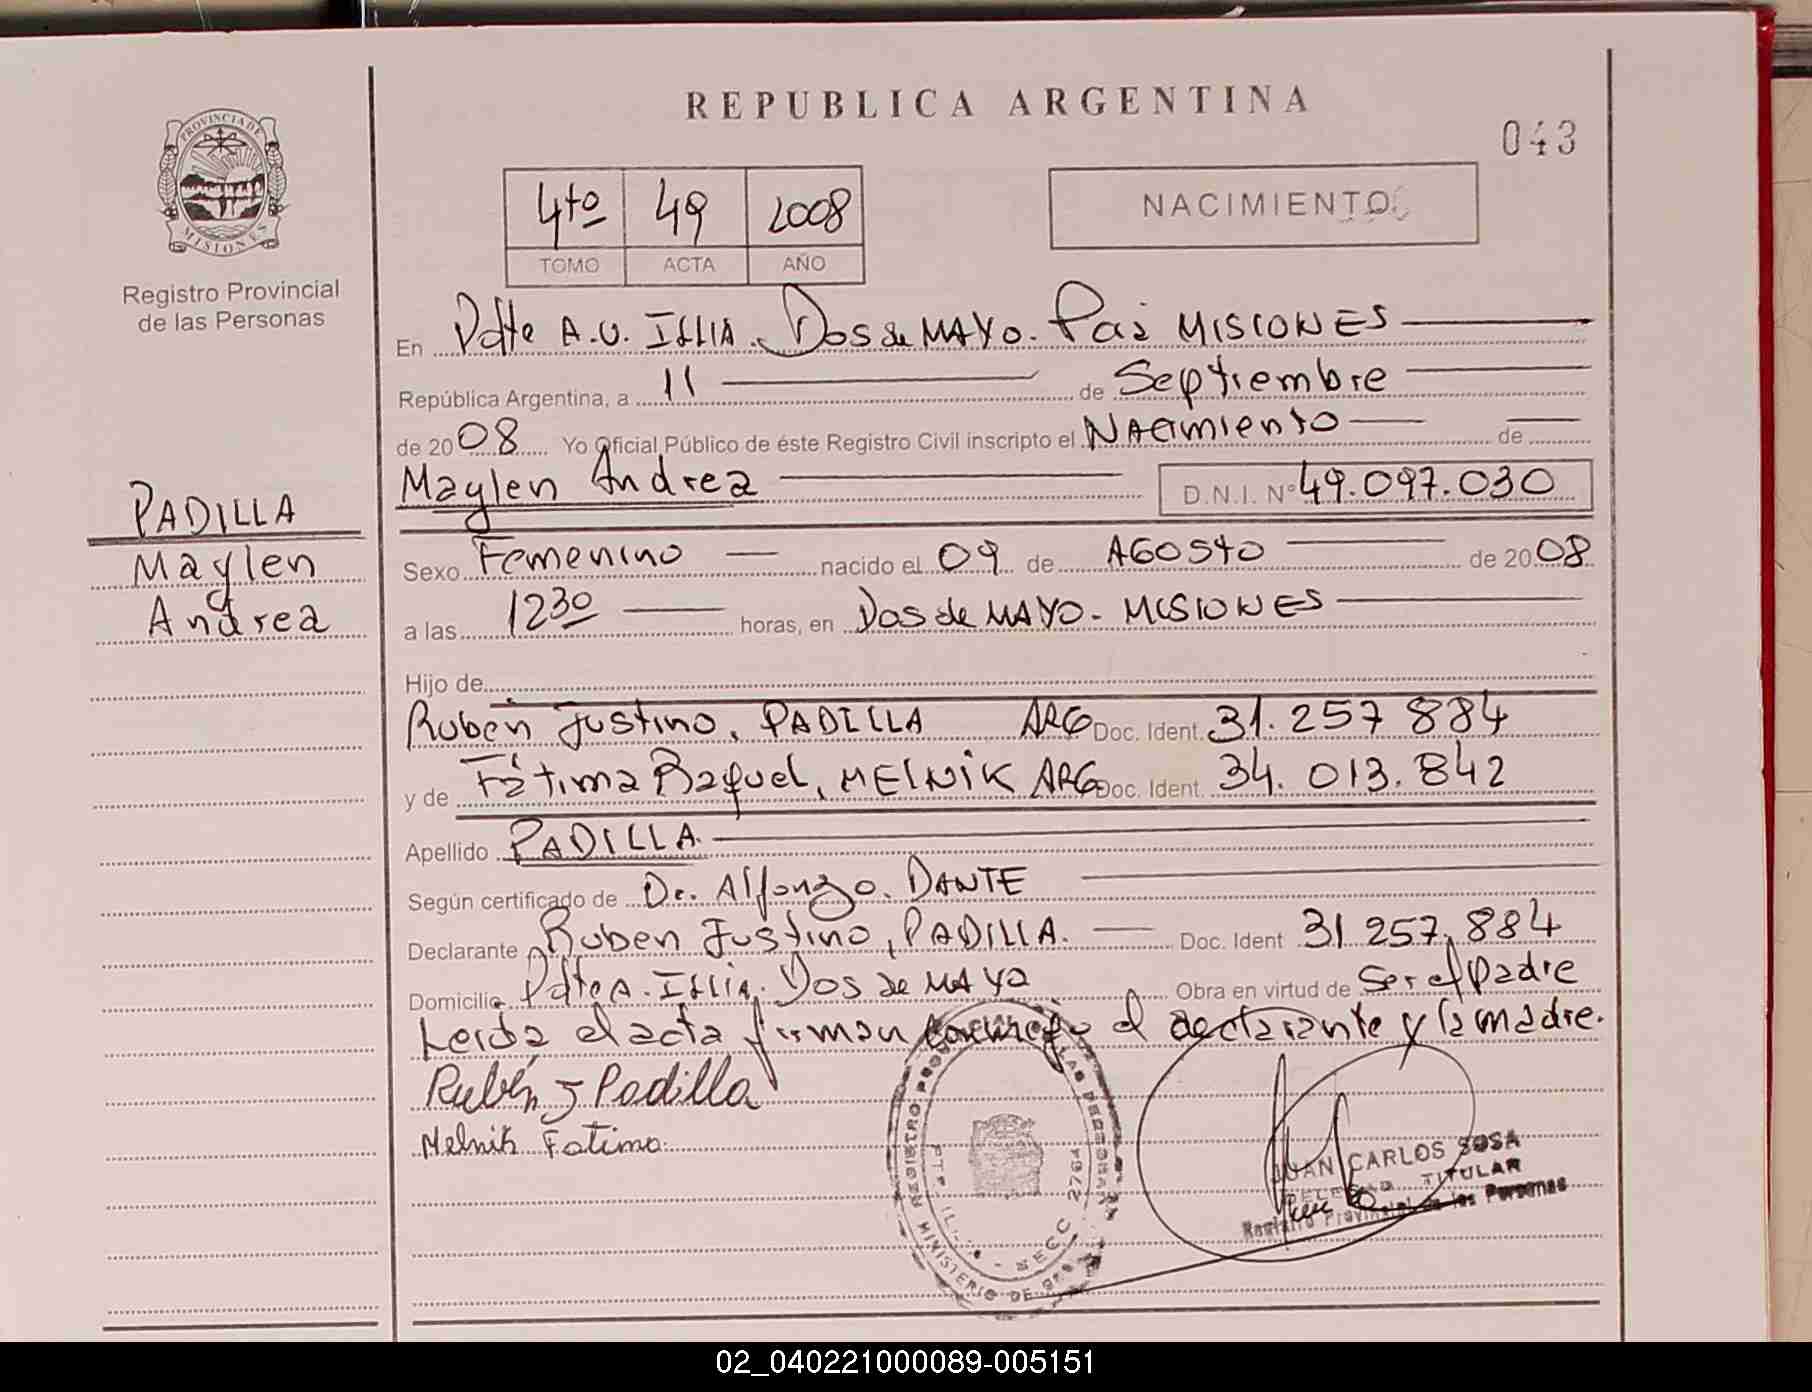 REPUBLICA ARGENTINA
043
PROVINCIA DE MISIONES
Registro Provincial
de las Personas
4to 49 2008
TOMO ACTA AÑO
NACIMIENTO
En Pdte A.U. ILLIA. Dos de MAYO. MISIONES
República Argentina, a 11 de Septiembre
de 2008 Yo Oficial Público de éste Registro Civil inscripto el Nacimiento de
Maylen Andrea D.N.I. Nº 49.097.030
PADILLA
Maylen
Andrea
Sexo Femenino nacido el 09 de AGOSTO de 2008
a las 12 30 horas, en Dos de MAYO - MISIONES
Hijo de
Ruben Justino, PADILLA ARG Doc. Ident. 31.257 884
y de Fátima Raquel, MELNIK ARG Doc. Ident. 34.013.842
Apellido PADILLA
Según certificado de Dr. Alfonzo. DANTE
Declarante Ruben Justino, PADILLA. Doc. Ident 31.257.884
Domicilio Pdte A. Illia. Dos de MAYO Obra en virtud de Ser el Padre
Leida el acta firman conmigo el declarante y la madre.
Rubén J Padilla
Melnik Fatima
JUAN CARLOS SOSA
DELEGADO TITULAR
Registro Provincial de las Personas
02_040221000089-005151